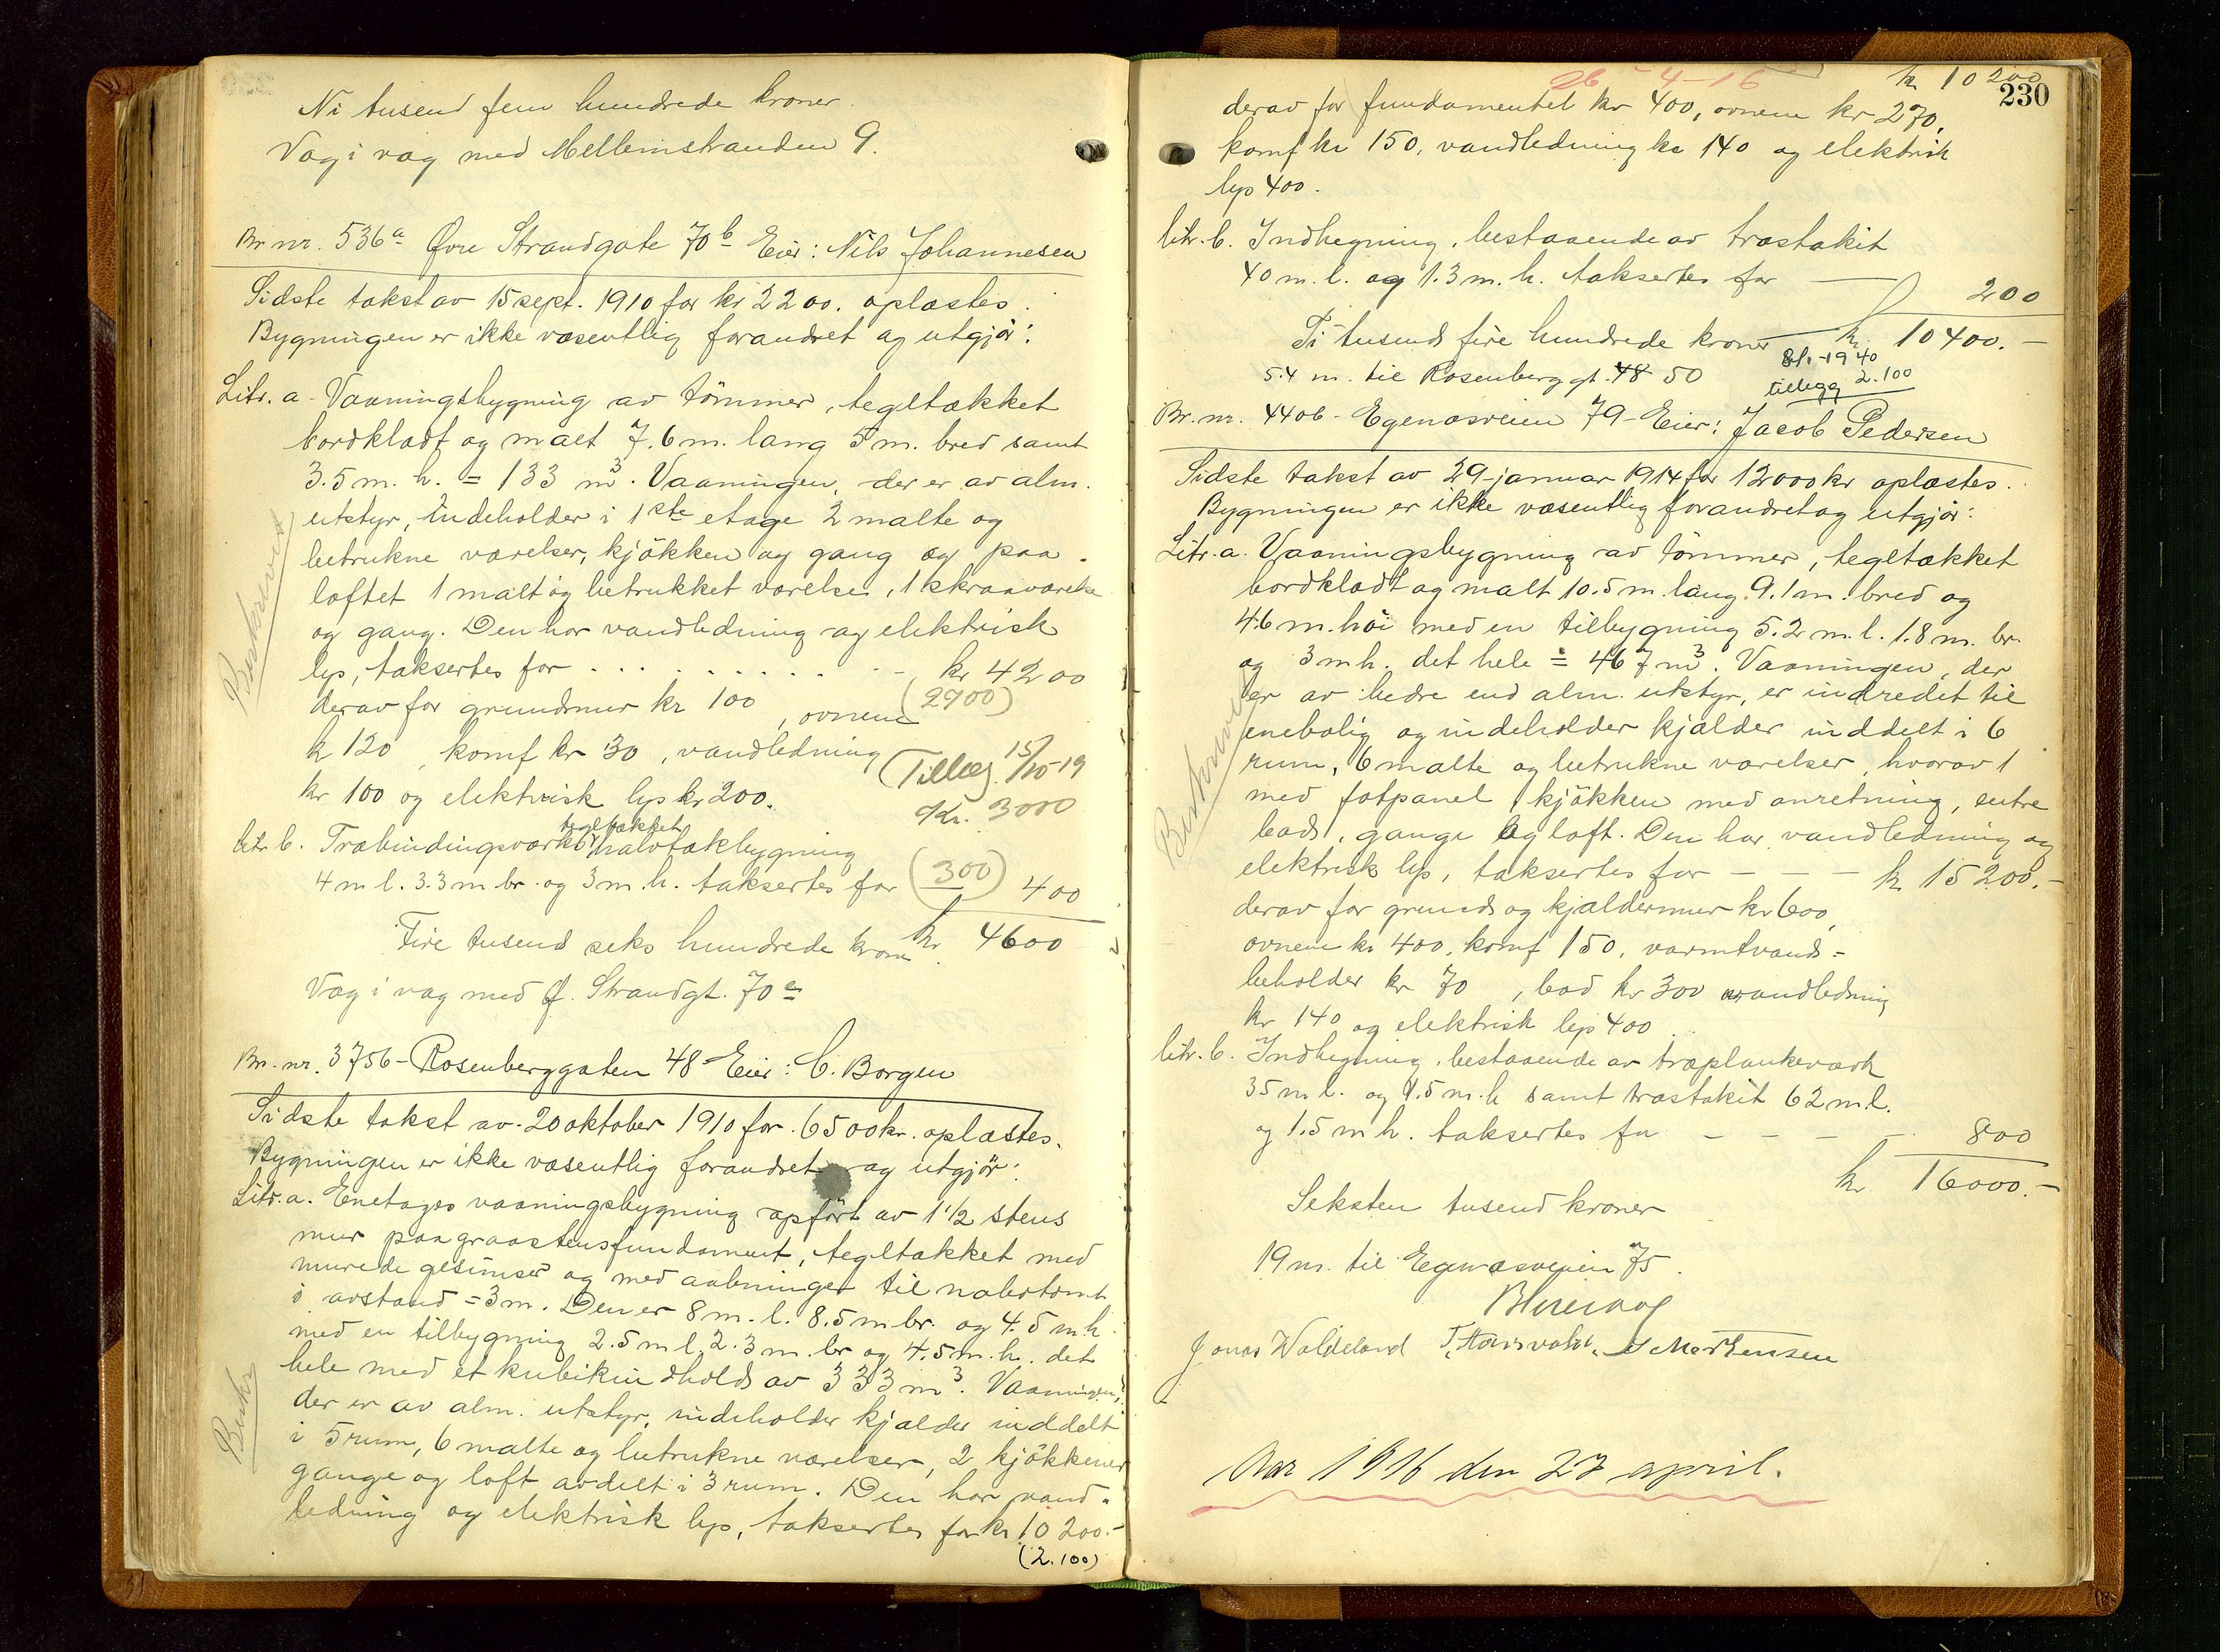 Ni tusend fem hundrede kroner.
Væg i væg med Mellemstranden 9.
Br nr. 536a Øvre Strandgate 70b Eier: Nils Johannesen
Sidste takst av 15 sept. 1910 for kr 2200. oplæstes.
Bygningen er ikke væsentlig forandret og utgjør:
Litr. a - Vaaningsbygning av tömmer, tegltækket
bordklædt og malt 7.6 m. lang 5 m. bred samt
3.5 m. h. = 133 m3. Vaaningen, der er av alm.
utstyr, indeholder i 1ste etage 2 malte og
betrukne værelser, kjökken og gang og paa
loftet 1 malt og betrukket værelse, 1 skraaværelse
og gang. Den har vandledning og elektrisk
lys, taksertes for . . . . . . . . - kr 4200
(2900)
derav for grundmur kr 100, ovnene
k 120, komf kr 30, vandledning
kr 100 og elektrisk lys kr 200.
(Tillæg. 15/10-19
Kr. 3000
tegltækket
litr b. Træbindingsværks halvtakbygning
4 m l. 3.3 m br. og 3 m. h. taksertes for (300) 400
Fire tusend seks hundrede kroner kr. 4600
Væg i væg med Ø. Strandgt. 70a
Br. nr. 3756 - Rosenberggaten 48 - Eier: C. Borgen
Sidste takst av 20 oktober 1910 for 6500 kr. oplæstes.
Bygningen er ikke væsentlig forandret og utgjör:
Litr. a. Enetages vaaningsbygning opfört av 1 1/2 stens
mur paa graastensfundament, tegltækket med
murede gesimser og med aabninger til nabotomt
i avstand = 3 m. Den er 8 m. l. 8.5 m br. og 4.5 m. h.
med en tilbygning 2.5 m l. 2.3 m. br og 4.5 m. h. det
hele med et kubikindhold av 333 m3. Vaaningen,
der er av alm. utstyr, indeholder kjælder inddelt
i 5 rum, 6 malte og betrukne værelser, 2 kjökkener
gange og loft avdelt i 3 rum. Den har vand-
ledning og elektrisk lys, taksertes for kr 10 200.-
(2.100)
Beskrevet
Beskr
26-4-16
kr 10 200
230
derav for fundamentet kr 400, ovnene kr 270,
komf kr 150, vandledning kr 140 og elektrisk
lys 400.
litr. b. Indhegning, bestaaende av træstakit
40 m. l. og 1.3 m. h. taksertes for 200
Ti tusend fire hundrede kroner kr. 10400.-
5.4 m. til Rosenberggt. 48 50
8/1-1940
tillegg 2.100
Br. nr. 4406 - Egenæsveien 79 - Eier: Jacob Pedersen
Sidste takst av 29 januar 1914 for 12000 kr oplæstes.
Bygningen er ikke væsentlig forandret og utgjör:
Litr. a. Vaaningsbygning av tömmer, tegltækket
bordklædt og malt 10.5 m lang 9.1 m. bred og
4.6 m. höi med en tilbygning 5.2 m. l. 1.8 m. br.
og 3 m h. det hele = 467 m3. Vaaningen, der
er av bedre end alm. utstyr, er indredet til
enebolig og indeholder kjælder inddelt i 6
rum, 6 malte og betrukne værelser, hvorav 1
med fotpanel, kjökken med anretning, entre
bad, gange og loft. Den har vandledning og
elektrisk lys, taksertes for - - - kr 15200.-
derav for grund og kjældermur kr 600,
ovnene kr 400, komf 150, varmtvands-
beholder kr 70, bad kr 300 vandledning
kr 140 og elektrisk lys 400.
litr. b. Indhegning, bestaaende av træplankeværk
35 m l. og 1.5 m. h samt træstakit 62 m. l.
og 1.5 m h. taksertes for - - - - 800
kr 16000.-
Seksten tusend kroner
19 m. til Egenæsveien 75.
Jonas Waldeland T. Hausvahl. J Mortensen
Beskrevet
Aar 1916 den 27 april.